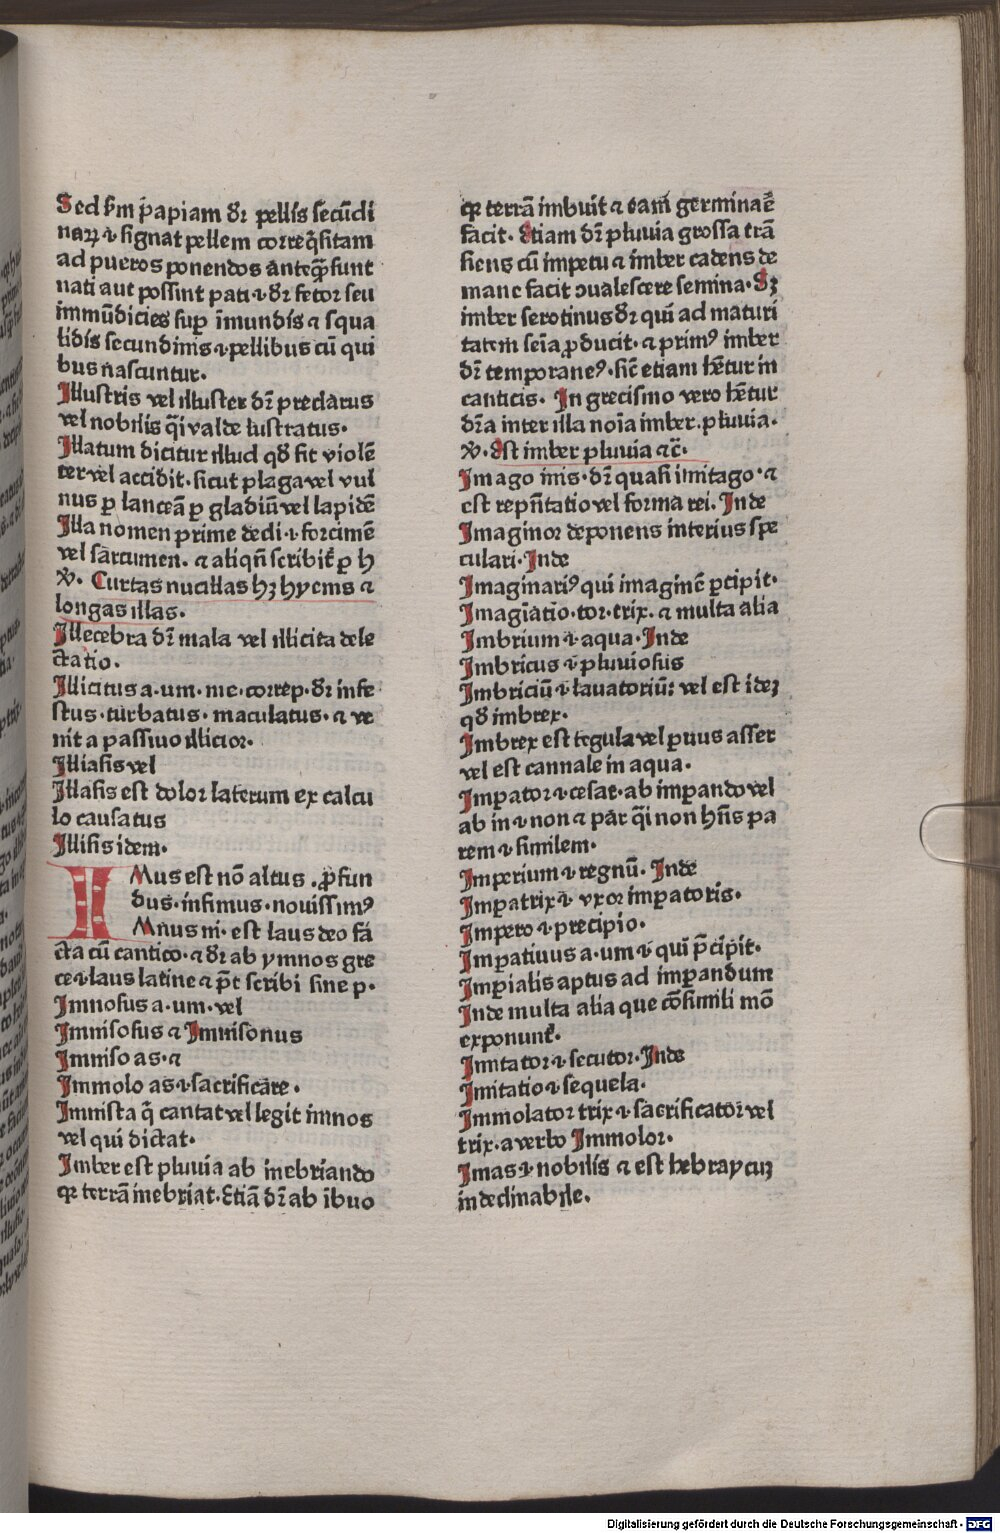 Sed ſm p̄apiam dr̄ pellis ſecūdi
naꝝ ꝛ ſignat pellem correq̄ſitam
ad pueros ponendos anteq̄ ſunt
nati aut poſſint pati ꝛ dr̄ fetor ſeu
immūdicies ſuꝑ īmundis ⁊ ſqua
lidis ſecundinis ꝛ pellibus cū qui
bus naſcuntur.
Illuſtris vel illuſter dr̄ preclarus
vel nobilis q̄i valde luſtratus.
Illatum dicitur illud qđ fit violē
ter vel accidit. ſicut plaga vel vul
nus ꝑ lanceā ꝑ gladiū vel lapidē
Illa nomen prime decli. ꝛ forcimē
vel ſarcumen. ⁊ aliqn̄ ſcribit̄ ꝑ h
V̕. Curtas nucillas hꝫ hyems ⁊
longas illas.
Illecebra dr̄ mala vel illicita dele
ctatio.
Illicitus a. um. me. correp. dr̄ infe
ſtus. turbatus. maculatus. ⁊ ve
nit a paſſiuo illicior.
Illiaſis vel
Illaſis eſt dolor laterum ex calcu
lo cauſatus
Illiſis idem.
IMus eſt nō altus . ꝓfun
dus. infimus. nouiſſimꝰ
Mnus ni. eſt laus deo fa
cta cū cantico. ⁊ dr̄ ab ymnos gre
ce ꝛ laus latine ⁊ p̄t ſcribi ſine p.
Imnoſus a. um. vel
Imniſoſus ⁊ Imniſonus
Imniſo as. ⁊
Immolo as ꝛ ſacrificare.
Imniſta q̄ cantat vel legit imnos
vel qui dictat.
Imber eſt pluuia ab inebriando
qꝛ terrā inebriat. Etiā dr̄ ab ibuo
qꝛ terrā imbuit ⁊ eam germinaē
facit. Etiam dr̄ pluuia groſſa trā
ſiens cū impetu ⁊ imber cadens de
mane facit ꝯualeſcere ſemina. Sꝫ
imber ſerotinus dr̄ qui ad maturi
tatem ſeīa ꝓducit. ⁊ primꝰ imber
dr̄ temporaneꝰ. ſic̄ etiam hētur in
canticis. In greciſmo vero hētur
dr̄a inter illa noīa imber. pluuia.
V̕. Eſt imber pluuia ⁊c̄.
Imago inis. dr̄ quaſi imitago. ⁊
eſt repn̄tatio vel forma rei. Inde
Imaginor deponens interius ſpe
culari. Inde
Imaginariꝰ qui imaginē ꝑcipit.
Imagīatio. tor. trix. ⁊ multa alia
Imbrium ꝛ aqua. Inde
Imbricus ꝛ pluuioſus
Imbriciū ꝛ lauatoriū: vel eſt ideꝫ
qđ imbrex.
Imbrex eſt tegula vel ꝑuus aſſer
vel eſt cannale in aqua.
Imꝑator ꝛ ceſar. ab imꝑando vel
ab in ꝛ non ⁊ par q̄i non hn̄s pa
rem ꝛ ſimilem.
Imperium ꝛ regnū. Inde
Imꝑatrix ꝛ vxor imꝑatoris.
Impero ꝛ precipio.
Imꝑatiuus a. um ꝛ qui p̄cipit.
Imꝑialis aptus ad imꝑandum
Inde multa alia que cōſimili mō
exponunt̄.
Imitator ꝛ ſecutor. Inde
Imitatio ꝛ ſequela.
Immolator trix ꝛ ſacrificator vel
trix. a verbo Immolor.
Imas ꝛ nobilis ⁊ eſt hebraycuꝫ
indeclinabile.
Digitalisierung gefördert durch die Deutsche Forschungsgemeinschaft - DFG